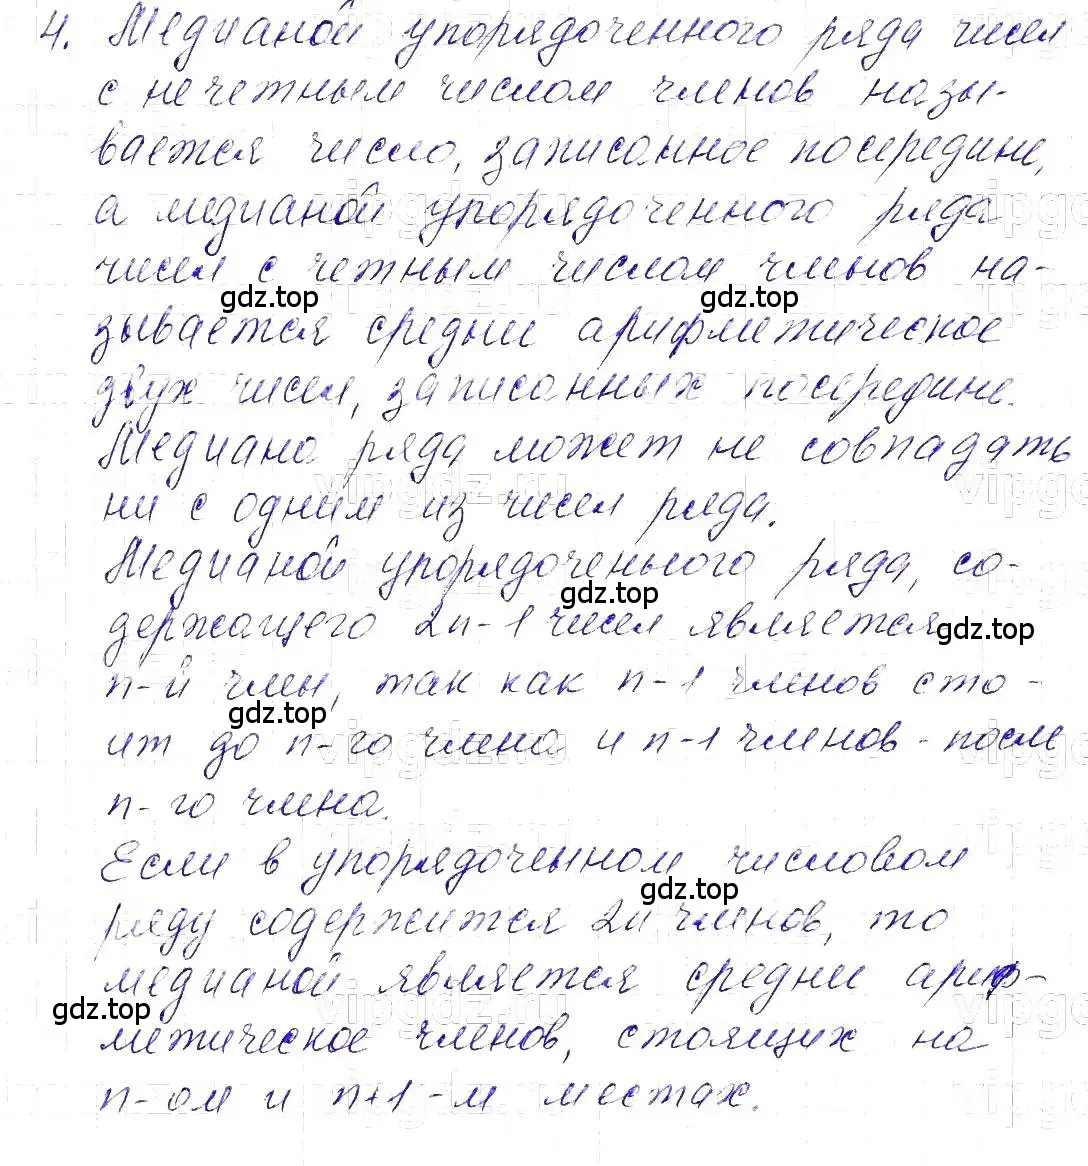 4. Медианой упорядоченного ряда чисел
с нечетным числом членов назы-
вается число, записанное посередине,
а медианой упорядоченного ряда
чисел с четным числом членов на-
gdz.top gdz.top
зывается средние арифметическое
двух чисел, записанных посередине.
Медиана ряда может не совпадать
ни с одним из чисел ряда.
Медианой упорядоченного ряда, со-
gdz.top
держащего 2n-1 чисел является
gdz.top
n-й член, так как n-1 членов сто-
gdz.top
ит до n-го члена и n-1 членов - после
n-го члена.
Если в упорядоченном числовом
gdz.top
ряду содержится 2n членов, то
медианой является средни ариф-
gdz.top
метическое членов, стоящих на
n-ом и n+1-м местах.